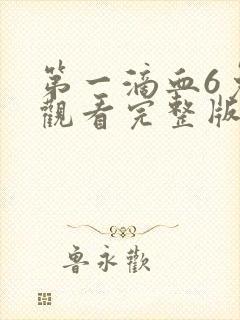 第一滴血6
觀看完整版
魯永歡